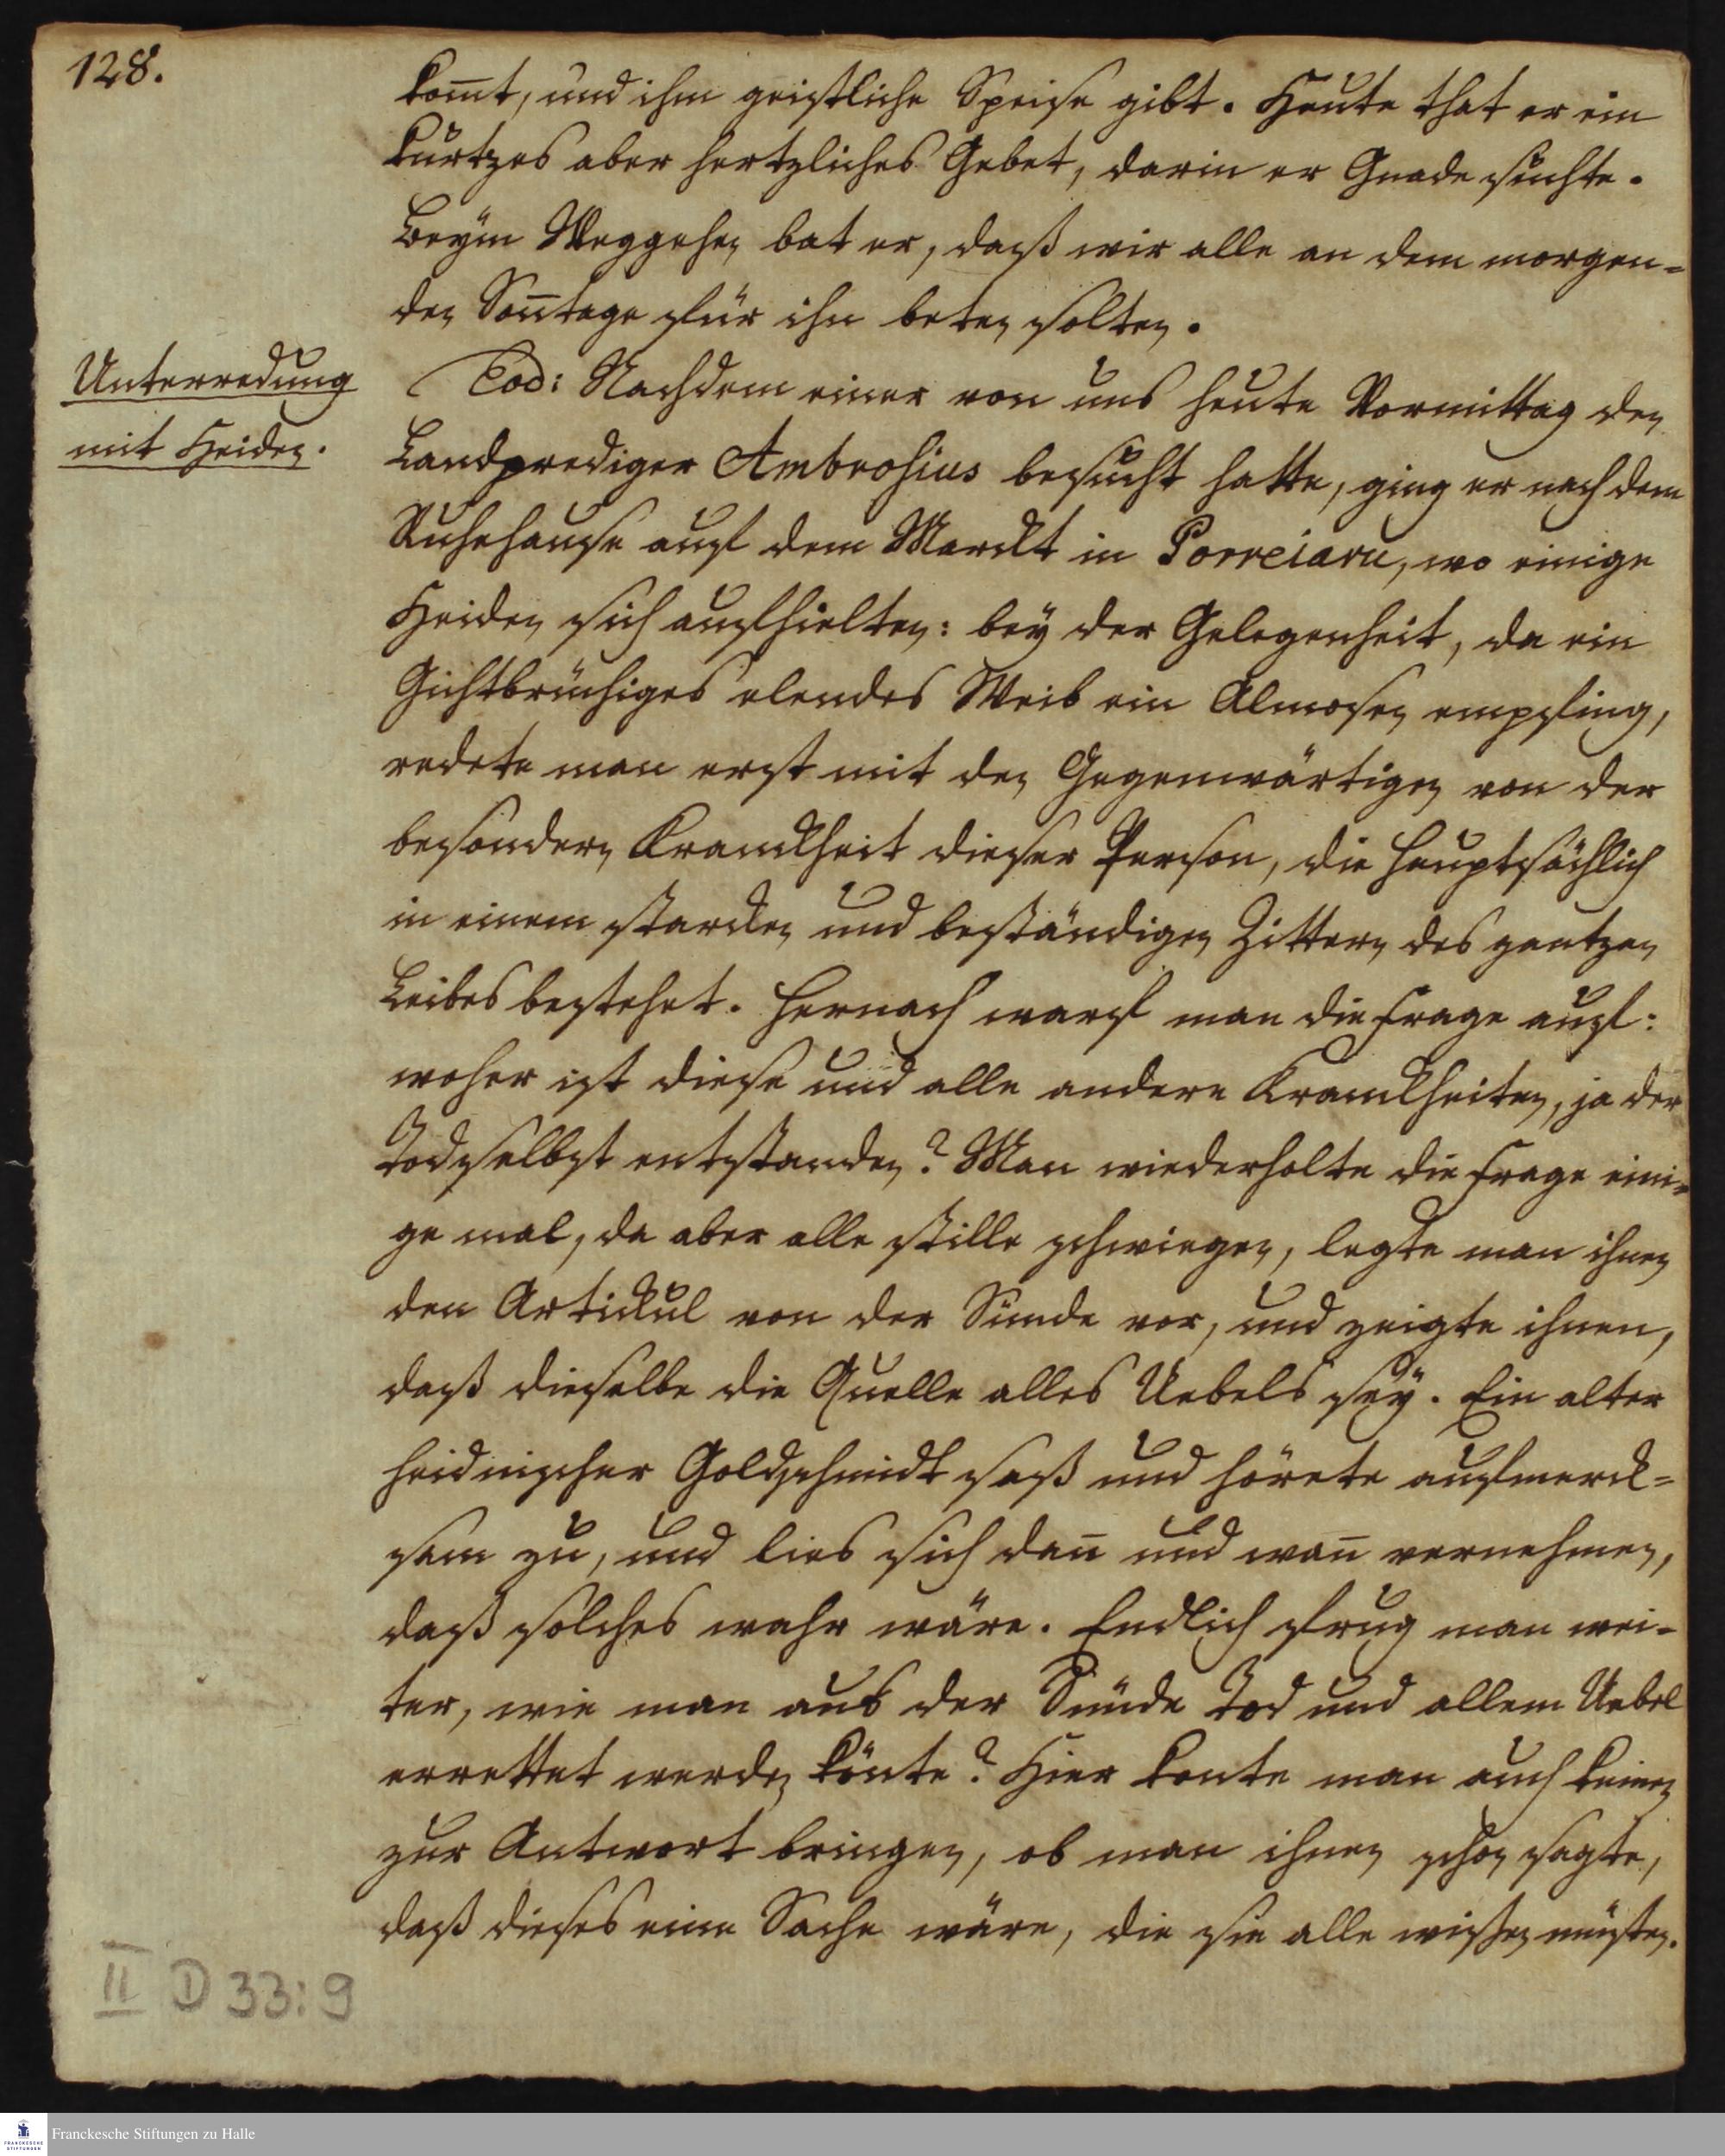 128.
kom̅t, und ihm geistliche Speise gibt. Heute that er ein
kurtzes aber hertzliches Gebet, darin er Gnade suchte.
Beym Weggehen bat er, daß wir alle an dem morgen=
den Son̅tage für ihn beten solten.
Unterredung
mit Heiden.
Eod: Nachdem einer von uns heute Vormittag den
Landprediger Ambrosius besucht hatte, ging er nach dem
Ruhehause auf dem Marckt in Porreiaru, wo einige
Heiden sich aufhielten: bey der Gelegenheit, da ein
Gichtbrüchiges elendes Weib ein Almosen empfing,
redete man erst mit den Gegenwärtigen von der
besondern Kranckheit dieser Person, die hauptsächlich
in einem starcken und beständigen Zittern des gantzen
Leibes bestehet. Hernach warf man die Frage auf:
woher ist diese und alle andere Kranckheiten, ja der
Tod selbst entstanden? Man wiederholte die Frage eini=
ge mal, da aber alle stille schwiegen, legte man ihnen
den Artickul von der Sünde vor, und zeigte ihnen,
daß dieselbe die Quelle alles Uebels sey. Ein alter
heidnischer Goldschmidt saß und hörete aufmerck=
sam zu, und lies sich dan̅ und wan̅ vernehmen,
daß solches wahr wäre. Endlich frug man wei=
ter, wie man aus der Sünde Tod und allem Uebel
errettet werden könte? Hier konte man auch keinen
zur Antwort bringen, ob man ihnen schon sagte,
daß dieses eine Sache wäre, die sie alle wißen müsten.
II D 33:9
FRANCKESCHE
STIFTUNGEN
Franckesche Stiftungen zu Halle